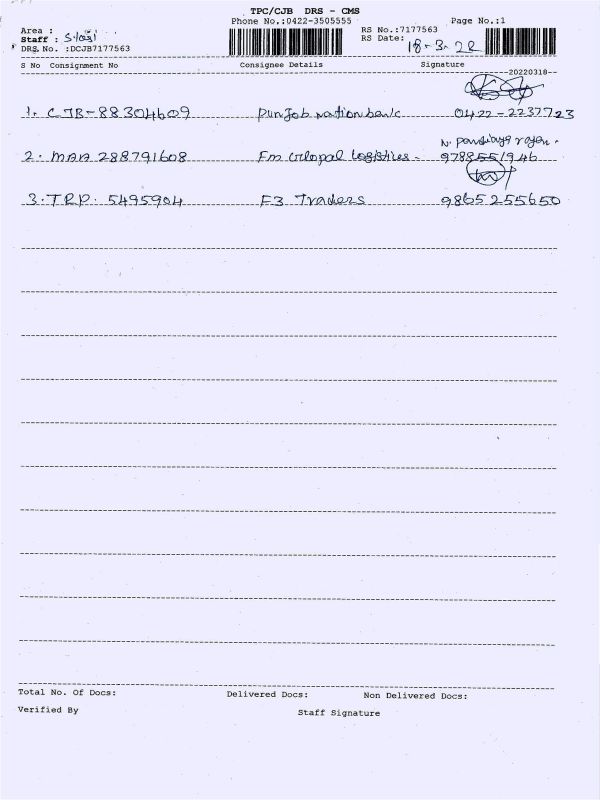 TPC/CJB DRS - CMS
Phone No.:0422-3505555 Page No.:1
Area : RS No.:7177563
Staff : RS Date: 18-3-22
DRS No. :DCJB7177563
S No Consignment No Consignee Details Signature
20220318
1. CJB-88304609 Punjab nation bank 0422-2237723
N. Pandiyarajan.
2. MAA 288791608 Fm Global Logistics - 9788551946
3. TRP. 5495904 F3 Traders 9865255650
Total No. Of Docs: Delivered Docs: Non Delivered Docs:
Verified By Staff Signature